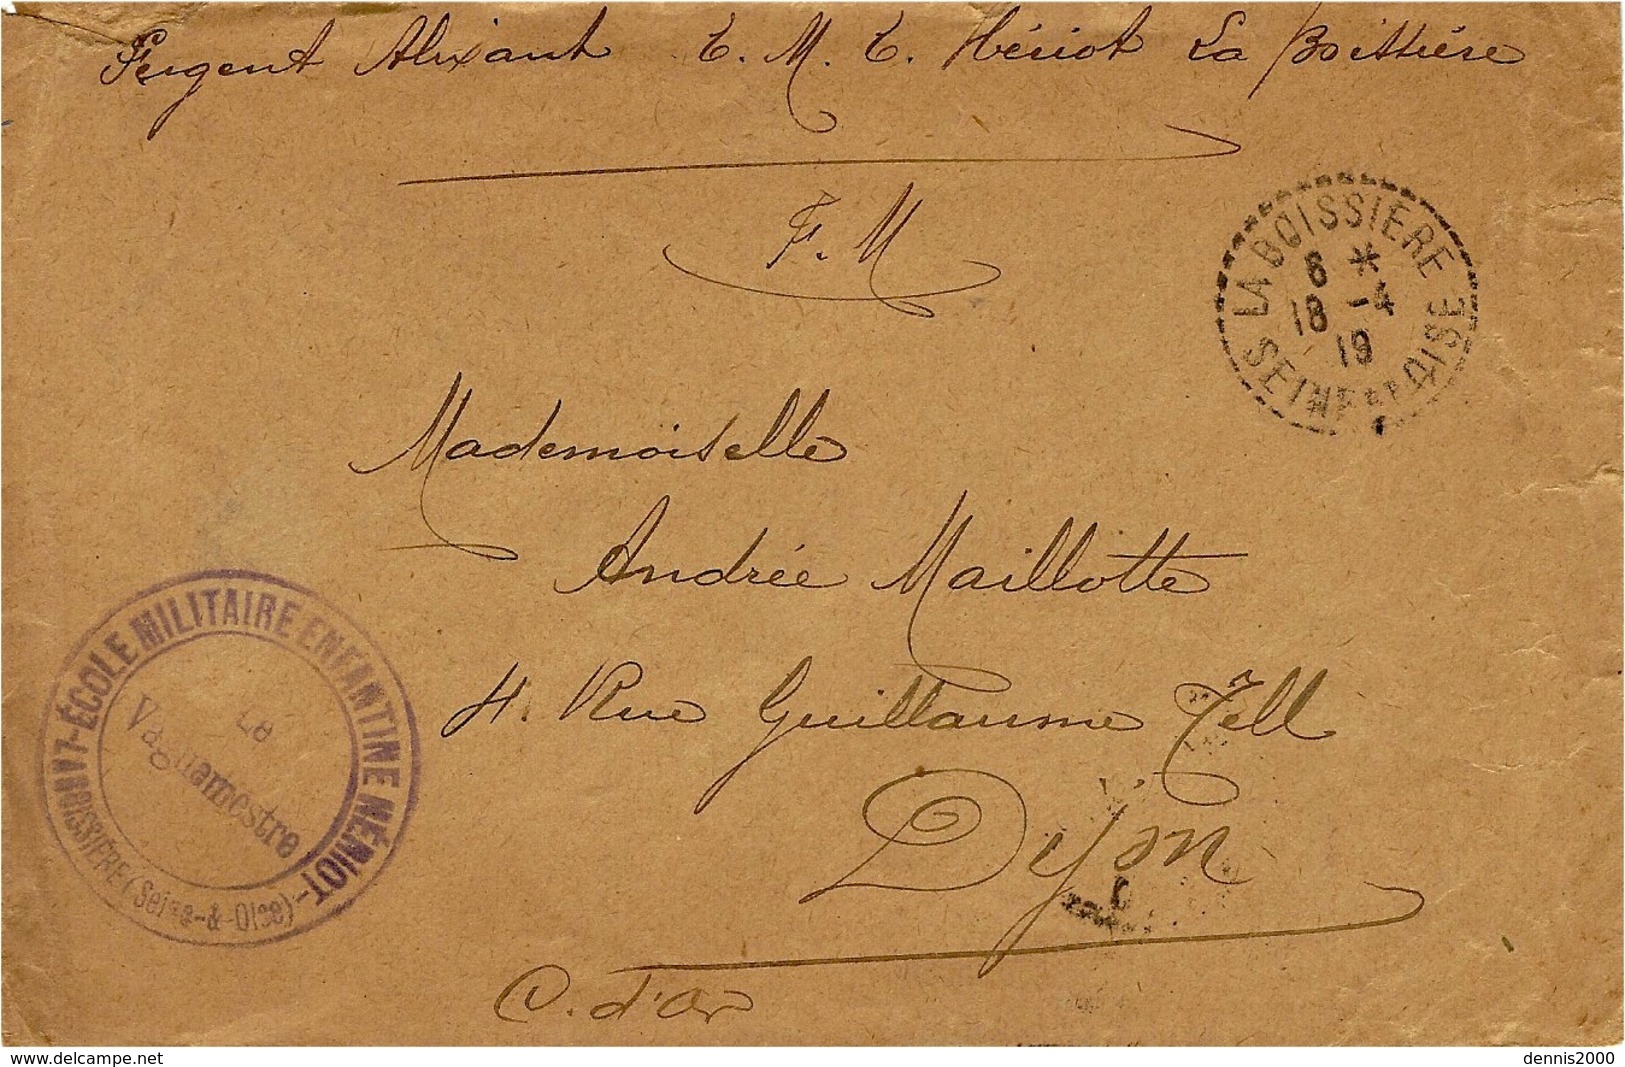 Sergent Alixant E. M. E. Hériot La Boissière
F. M
LA BOISSIÈRE
6 *
18 -4
19
SEINE ET OISE
Mademoiselle
Andrée Maillotte
4. Rue Guillaume Tell
Dijon
C. d'Or
ÉCOLE MILITAIRE ENFANTINE HÉRIOT-
LA BOISSIÈRE (Seine-&-Oise)
Le
Vaguemestre
www.delcampe.net
dennis2000